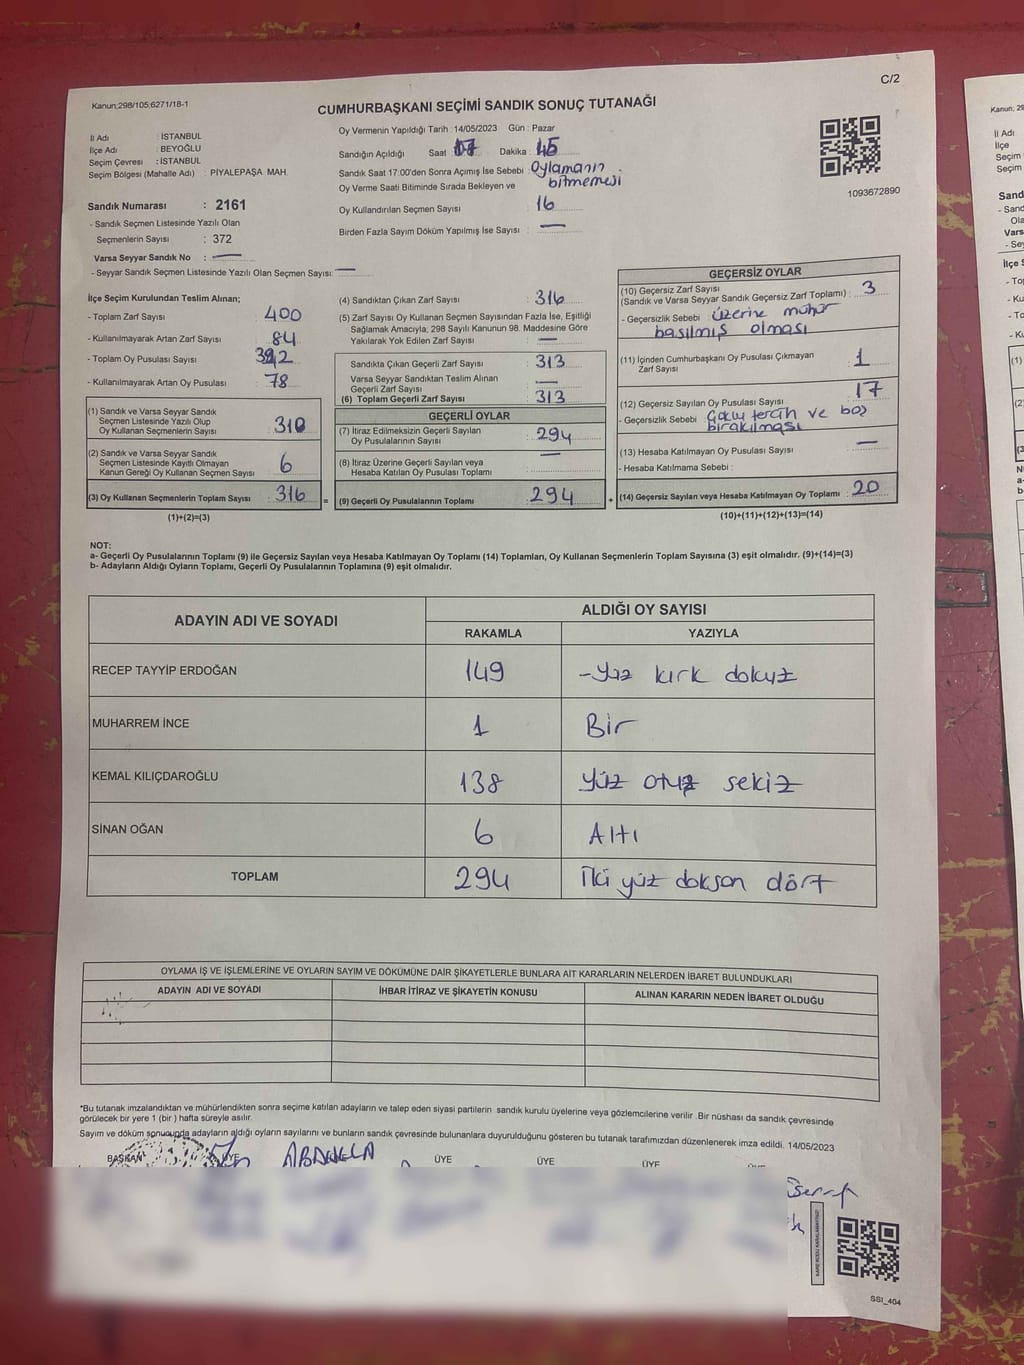 C/2
Kanun;298/105;6271/18-1
CUMHURBAŞKANI SEÇİMİ SANDIK SONUÇ TUTANAĞI
İl Adı : İSTANBUL
İlçe Adı : BEYOĞLU
Seçim Çevresi : İSTANBUL
Seçim Bölgesi (Mahalle Adı) : PİYALEPAŞA MAH.
Sandık Numarası : 2161
- Sandık Seçmen Listesinde Yazılı Olan
Seçmenlerin Sayısı : 372
Varsa Seyyar Sandık No : —
- Seyyar Sandık Seçmen Listesinde Yazılı Olan Seçmen Sayısı: —
Oy Vermenin Yapıldığı Tarih :14/05/2023 Gün : Pazar
Sandığın Açıldığı Saat 17 Dakika : 45
Sandık Saat 17:00'den Sonra Açımış İse Sebebi : Oylamanın
bitmemesi
Oy Verme Saati Bitiminde Sırada Bekleyen ve
Oy Kullandırılan Seçmen Sayısı : 16
Birden Fazla Sayım Döküm Yapılmış İse Sayısı : —
1093672890
İlçe Seçim Kurulundan Teslim Alınan;
- Toplam Zarf Sayısı : 400
- Kullanılmayarak Artan Zarf Sayısı : 84
- Toplam Oy Pusulası Sayısı : 392
- Kullanılmayarak Artan Oy Pusulası : 78
(1) Sandık ve Varsa Seyyar Sandık
Seçmen Listesinde Yazılı Olup
Oy Kullanan Seçmenlerin Sayısı : 310
(2) Sandık ve Varsa Seyyar Sandık
Seçmen Listesinde Kayıtlı Olmayan
Kanun Gereği Oy Kullanan Seçmen Sayısı : 6
(3) Oy Kullanan Seçmenlerin Toplam Sayısı : 316
(1)+(2)=(3)
(4) Sandıktan Çıkan Zarf Sayısı : 316
(5) Zarf Sayısı Oy Kullanan Seçmen Sayısından Fazla İse, Eşitliği
Sağlamak Amacıyla, 298 Sayılı Kanunun 98. Maddesine Göre
Yakılarak Yok Edilen Zarf Sayısı : —
Sandıkta Çıkan Geçerli Zarf Sayısı : 313
Varsa Seyyar Sandıktan Teslim Alınan
Geçerli Zarf Sayısı : —
(6) Toplam Geçerli Zarf Sayısı : 313
GEÇERLİ OYLAR
(7) İtiraz Edilmeksizin Geçerli Sayılan
Oy Pusulalarının Sayısı : 294
(8) İtiraz Üzerine Geçerli Sayılan veya
Hesaba Katılan Oy Pusulası Toplamı : —
= (9) Geçerli Oy Pusulalarının Toplamı : 294
GEÇERSİZ OYLAR
(10) Geçersiz Zarf Sayısı
(Sandık ve Varsa Seyyar Sandık Geçersiz Zarf Toplamı) : 3
- Geçersizlik Sebebi : Üzerine mühür
basılmış olması
(11) İçinden Cumhurbaşkanı Oy Pusulası Çıkmayan
Zarf Sayısı : 1
(12) Geçersiz Sayılan Oy Pusulası Sayısı : 17
- Geçersizlik Sebebi : Çoklu tercih ve boş
bırakılması
(13) Hesaba Katılmayan Oy Pusulası Sayısı : —
- Hesaba Katılmama Sebebi :
+ (14) Geçersiz Sayılan veya Hesaba Katılmayan Oy Toplamı : 20
(10)+(11)+(12)+(13)=(14)
NOT:
a- Geçerli Oy Pusulalarının Toplamı (9) ile Geçersiz Sayılan veya Hesaba Katılmayan Oy Toplamı (14) Toplamları, Oy Kullanan Seçmenlerin Toplam Sayısına (3) eşit olmalıdır. (9)+(14)=(3)
b- Adayların Aldığı Oyların Toplamı, Geçerli Oy Pusulalarının Toplamına (9) eşit olmalıdır.
ADAYIN ADI VE SOYADI ALDIĞI OY SAYISI
RAKAMLA YAZIYLA
RECEP TAYYİP ERDOĞAN 149 -Yüz kırk dokuz
MUHARREM İNCE 1 Bir
KEMAL KILIÇDAROĞLU 138 Yüz otuz sekiz
SİNAN OĞAN 6 Altı
TOPLAM 294 İki yüz doksan dört
OYLAMA İŞ VE İŞLEMLERİNE VE OYLARIN SAYIM VE DÖKÜMÜNE DAİR ŞİKAYETLERLE BUNLARA AİT KARARLARIN NELERDEN İBARET BULUNDUKLARI
ADAYIN ADI VE SOYADI İHBAR İTİRAZ VE ŞİKAYETİN KONUSU ALINAN KARARIN NEDEN İBARET OLDUĞU
*Bu tutanak imzalandıktan ve mühürlendikten sonra seçime katılan adayların ve talep eden siyasi partilerin sandık kurulu üyelerine veya gözlemcilerine verilir .Bir nüshası da sandık çevresinde
görülecek bir yere 1 (bir ) hafta süreyle asılır.
Sayım ve döküm sonucunda adayların aldığı oyların sayılarını ve bunların sandık çevresinde bulunanlara duyurulduğunu gösteren bu tutanak tarafımızdan düzenlenerek imza edildi. 14/05/2023
BAŞKAN ÜYE ÜYE ÜYE ÜYE
SSI_404